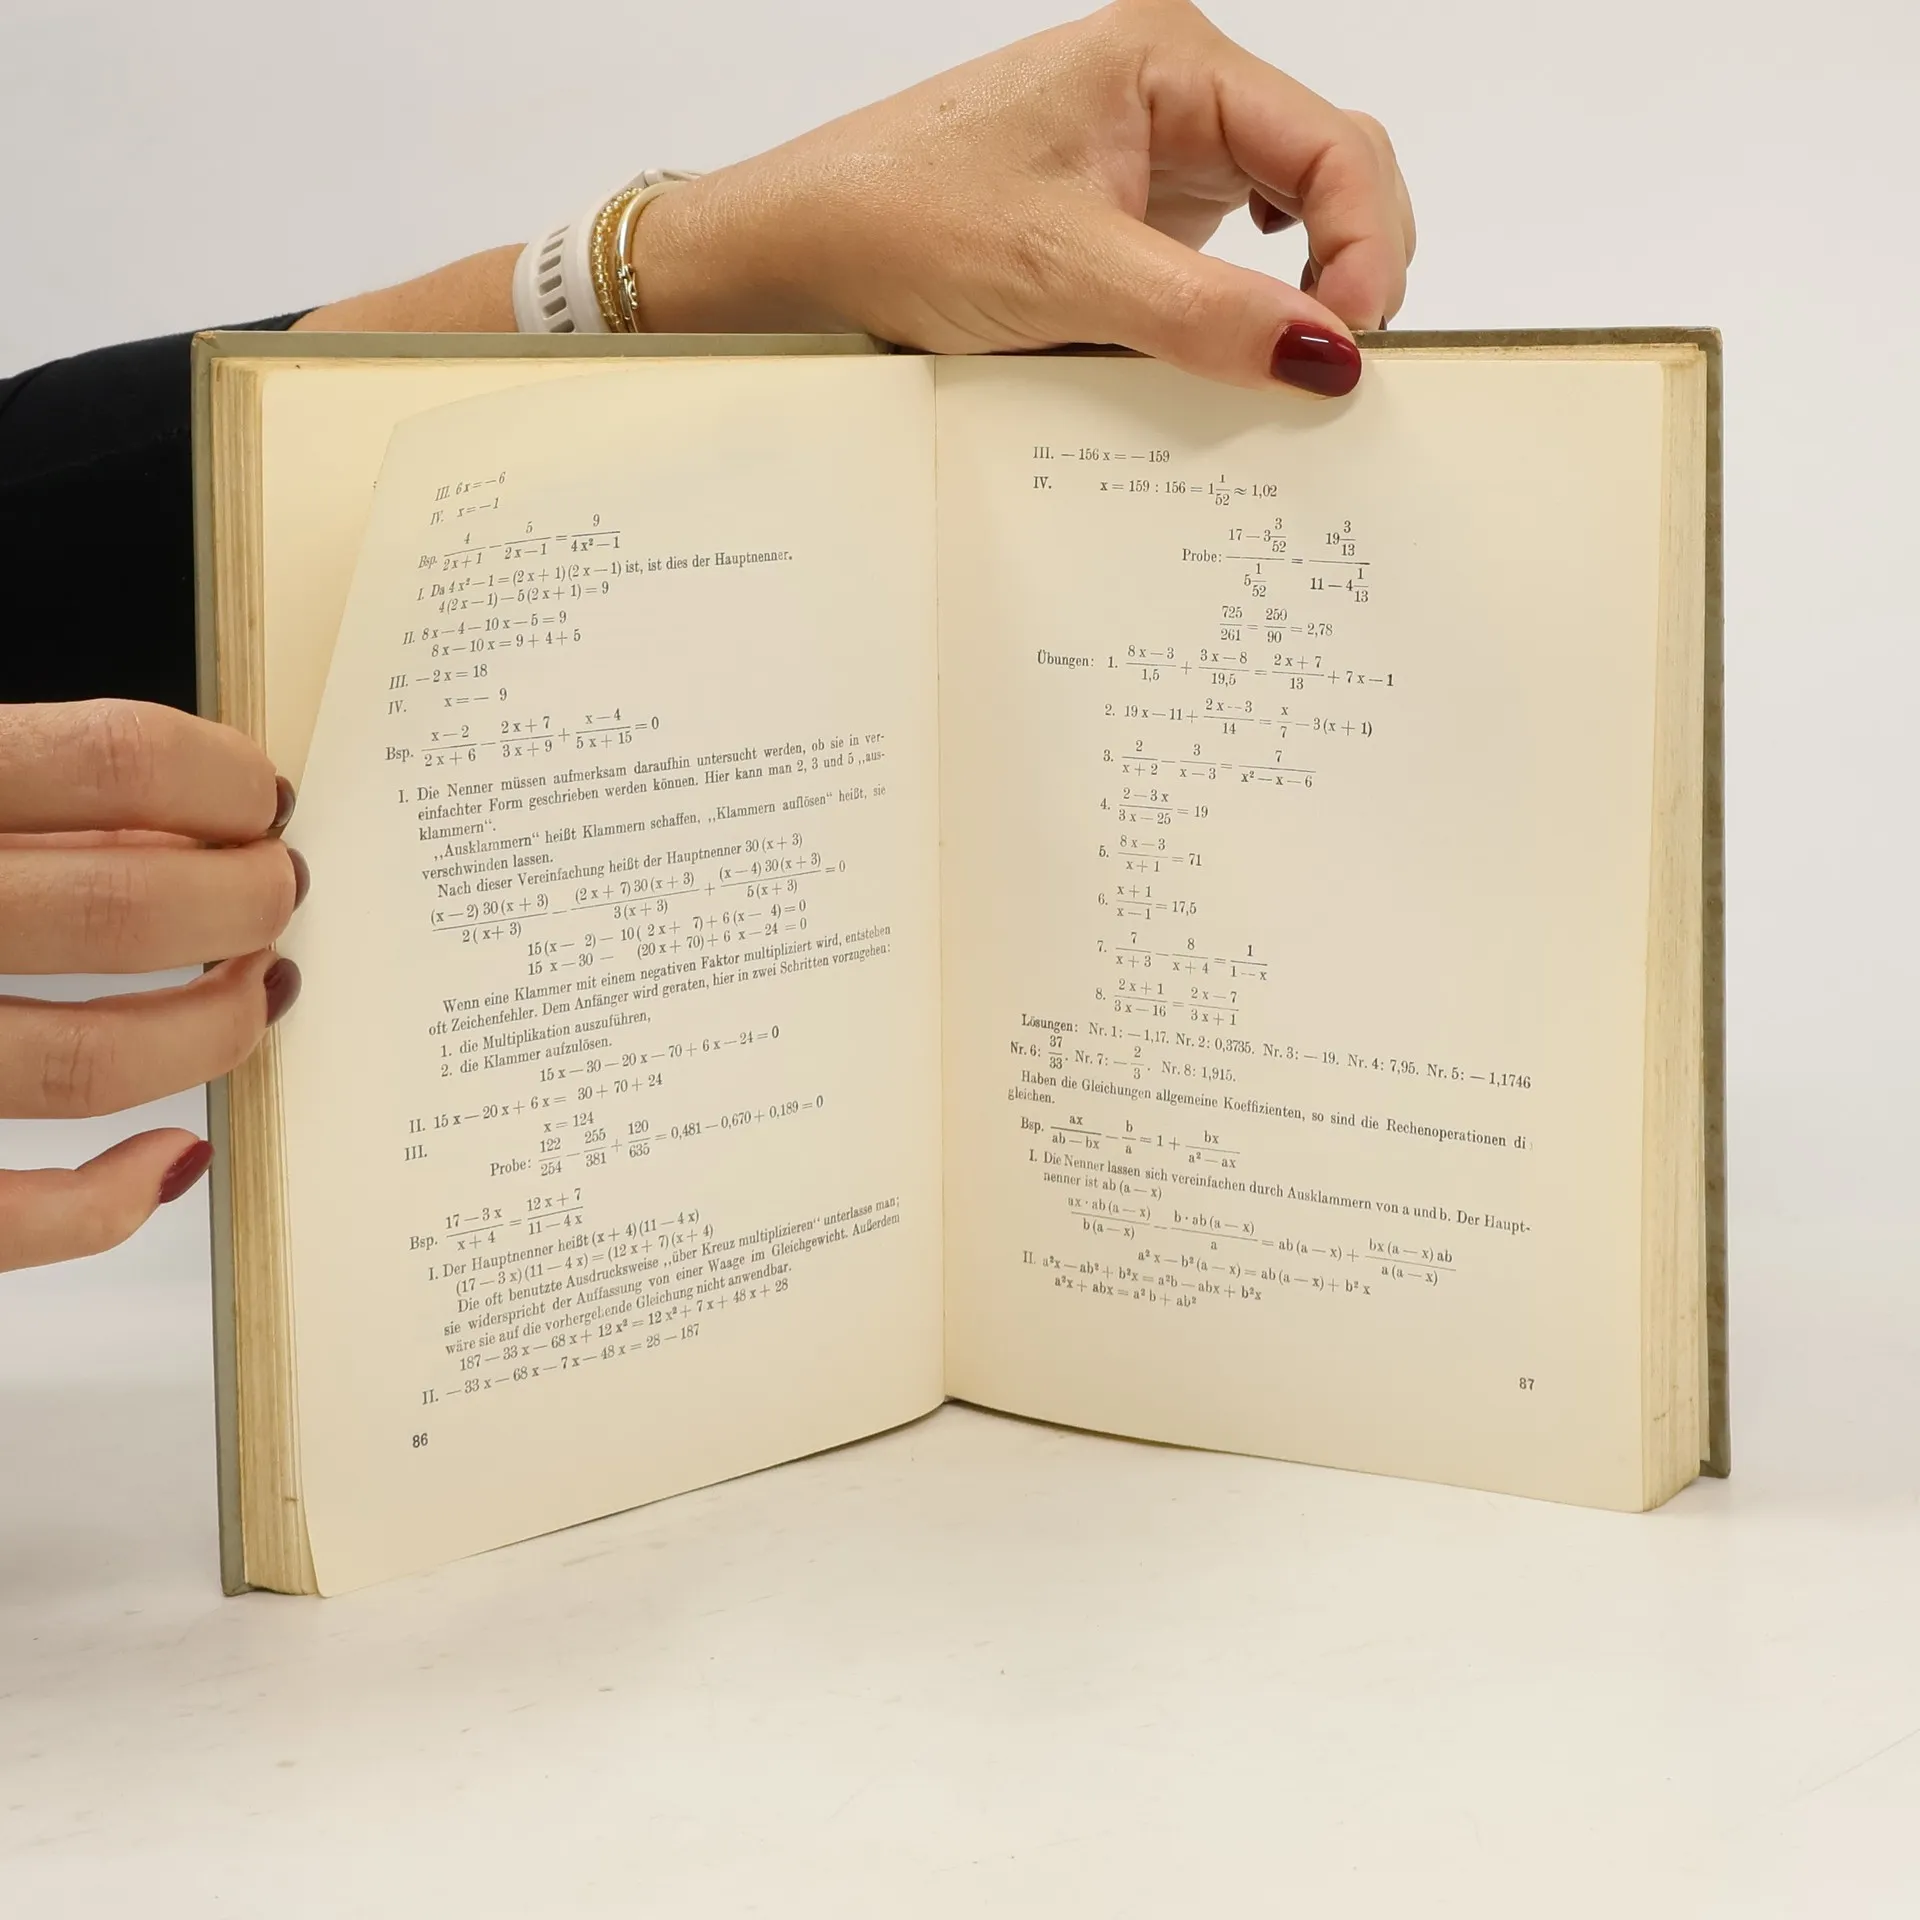 III. 6x = — 6
IV. x = — 1
Bsp. 4/(2x + 1) — 5/(2x — 1) = 9/(4x² — 1)
I. Da 4x² — 1 = (2x + 1)(2x — 1) ist, ist dies der Hauptnenner.
4(2x — 1) — 5(2x + 1) = 9
II. 8x — 4 — 10x — 5 = 9
8x — 10x = 9 + 4 + 5
III. — 2x = 18
IV. x = — 9
Bsp. (x — 2)/(2x + 6) — (2x + 7)/(3x + 9) + (x — 4)/(5x + 15) = 0
I. Die Nenner müssen aufmerksam daraufhin untersucht werden, ob sie in ver-
einfachter Form geschrieben werden können. Hier kann man 2, 3 und 5 „aus-
klammern“.
„Ausklammern“ heißt Klammern schaffen, „Klammern auflösen“ heißt, sie
verschwinden lassen.
Nach dieser Vereinfachung heißt der Hauptnenner 30 (x + 3)
(x — 2) 30 (x + 3)/2 (x + 3) — (2x + 7) 30 (x + 3)/3 (x + 3) + (x — 4) 30 (x + 3)/5 (x + 3) = 0
15 (x — 2) — 10 (2x + 7) + 6 (x — 4) = 0
15 x — 30 — (20x + 70) + 6 x — 24 = 0
Wenn eine Klammer mit einem negativen Faktor multipliziert wird, entstehen
oft Zeichenfehler. Dem Anfänger wird geraten, hier in zwei Schritten vorzugehen:
1. die Multiplikation auszuführen,
2. die Klammer aufzulösen.
15 x — 30 — 20 x — 70 + 6 x — 24 = 0
II. 15 x — 20 x + 6 x = 30 + 70 + 24
III. x = 124
Probe: 122/254 — 255/381 + 120/635 = 0,481 — 0,670 + 0,189 = 0
Bsp. (17 — 3 x)/(x + 4) = (12 x + 7)/(11 — 4 x)
I. Der Hauptnenner heißt (x + 4) (11 — 4 x)
(17 — 3 x) (11 — 4 x) = (12 x + 7) (x + 4)
Die oft benutzte Ausdrucksweise „über Kreuz multiplizieren“ unterlasse man;
sie widerspricht der Auffassung von einer Waage im Gleichgewicht. Außerdem
wäre sie auf die vorhergehende Gleichung nicht anwendbar.
187 — 33 x — 68 x + 12 x² = 12 x² + 7 x + 48 x + 28
II. — 33 x — 68 x — 7 x — 48 x = 28 — 187
86
III. — 156 x = — 159
IV. x = 159 : 156 = 1 1/52 ≈ 1,02
Probe: (17 — 3 3/52)/(5 1/52) = (19 3/13)/(11 — 4 1/13)
725/261 = 250/90 = 2,78
Übungen: 1. (8 x — 3)/1,5 + (3 x — 8)/19,5 = (2 x + 7)/13 + 7 x — 1
2. 19 x — 11 + (2 x — 3)/14 = x/7 — 3 (x + 1)
3. 2/(x + 2) — 3/(x — 3) = 7/(x² — x — 6)
4. (2 — 3 x)/(3 x — 25) = 19
5. (8 x — 3)/(x + 1) = 71
6. (x + 1)/(x — 1) = 17,5
7. 7/(x + 3) — 8/(x + 4) = 1/(1 — x)
8. (2 x + 1)/(3 x — 16) = (2 x — 7)/(3 x + 1)
Lösungen: Nr. 1: — 1,17. Nr. 2: 0,3735. Nr. 3: — 19. Nr. 4: 7,95. Nr. 5: — 1,1746
Nr. 6: 37/33. Nr. 7: — 2/3. Nr. 8: 1,915.
Haben die Gleichungen allgemeine Koeffizienten, so sind die Rechenoperationen di
gleichen.
Bsp. ax/(ab — bx) — b/a = 1 + bx/(a² — ax)
I. Die Nenner lassen sich vereinfachen durch Ausklammern von a und b. Der Haupt-
nenner ist ab (a — x)
ax · ab (a — x)/b (a — x) — b · ab (a — x)/a = ab (a — x) + bx (a — x) ab/a (a — x)
a² x — b² (a — x) = ab (a — x) + b² x
II. a²x — ab² + b²x = a²b — abx + b²x
a²x + abx = a² b + ab²
87